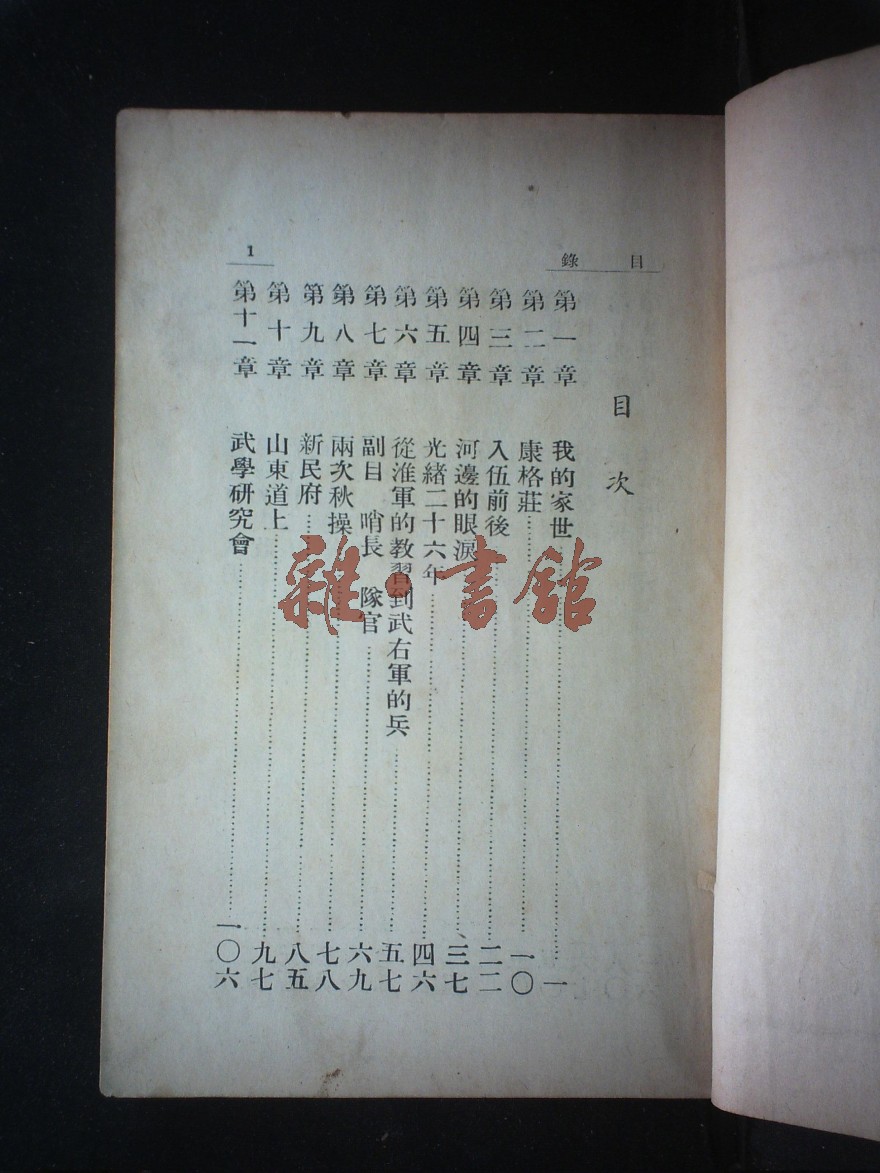 目錄
1
目次
第一章 我的家世 一
第二章 康格莊 一〇
第三章 入伍前後 二二
第四章 河邊的眼淚 三七
第五章 光緒二十六年 四六
第六章 從淮軍的教習到武右軍的兵 五七
第七章 副目 哨長 隊官 六九
第八章 兩次秋操 七八
第九章 新民府 八五
第十章 山東道上 九七
第十一章 武學研究會 一〇六
雜·書館